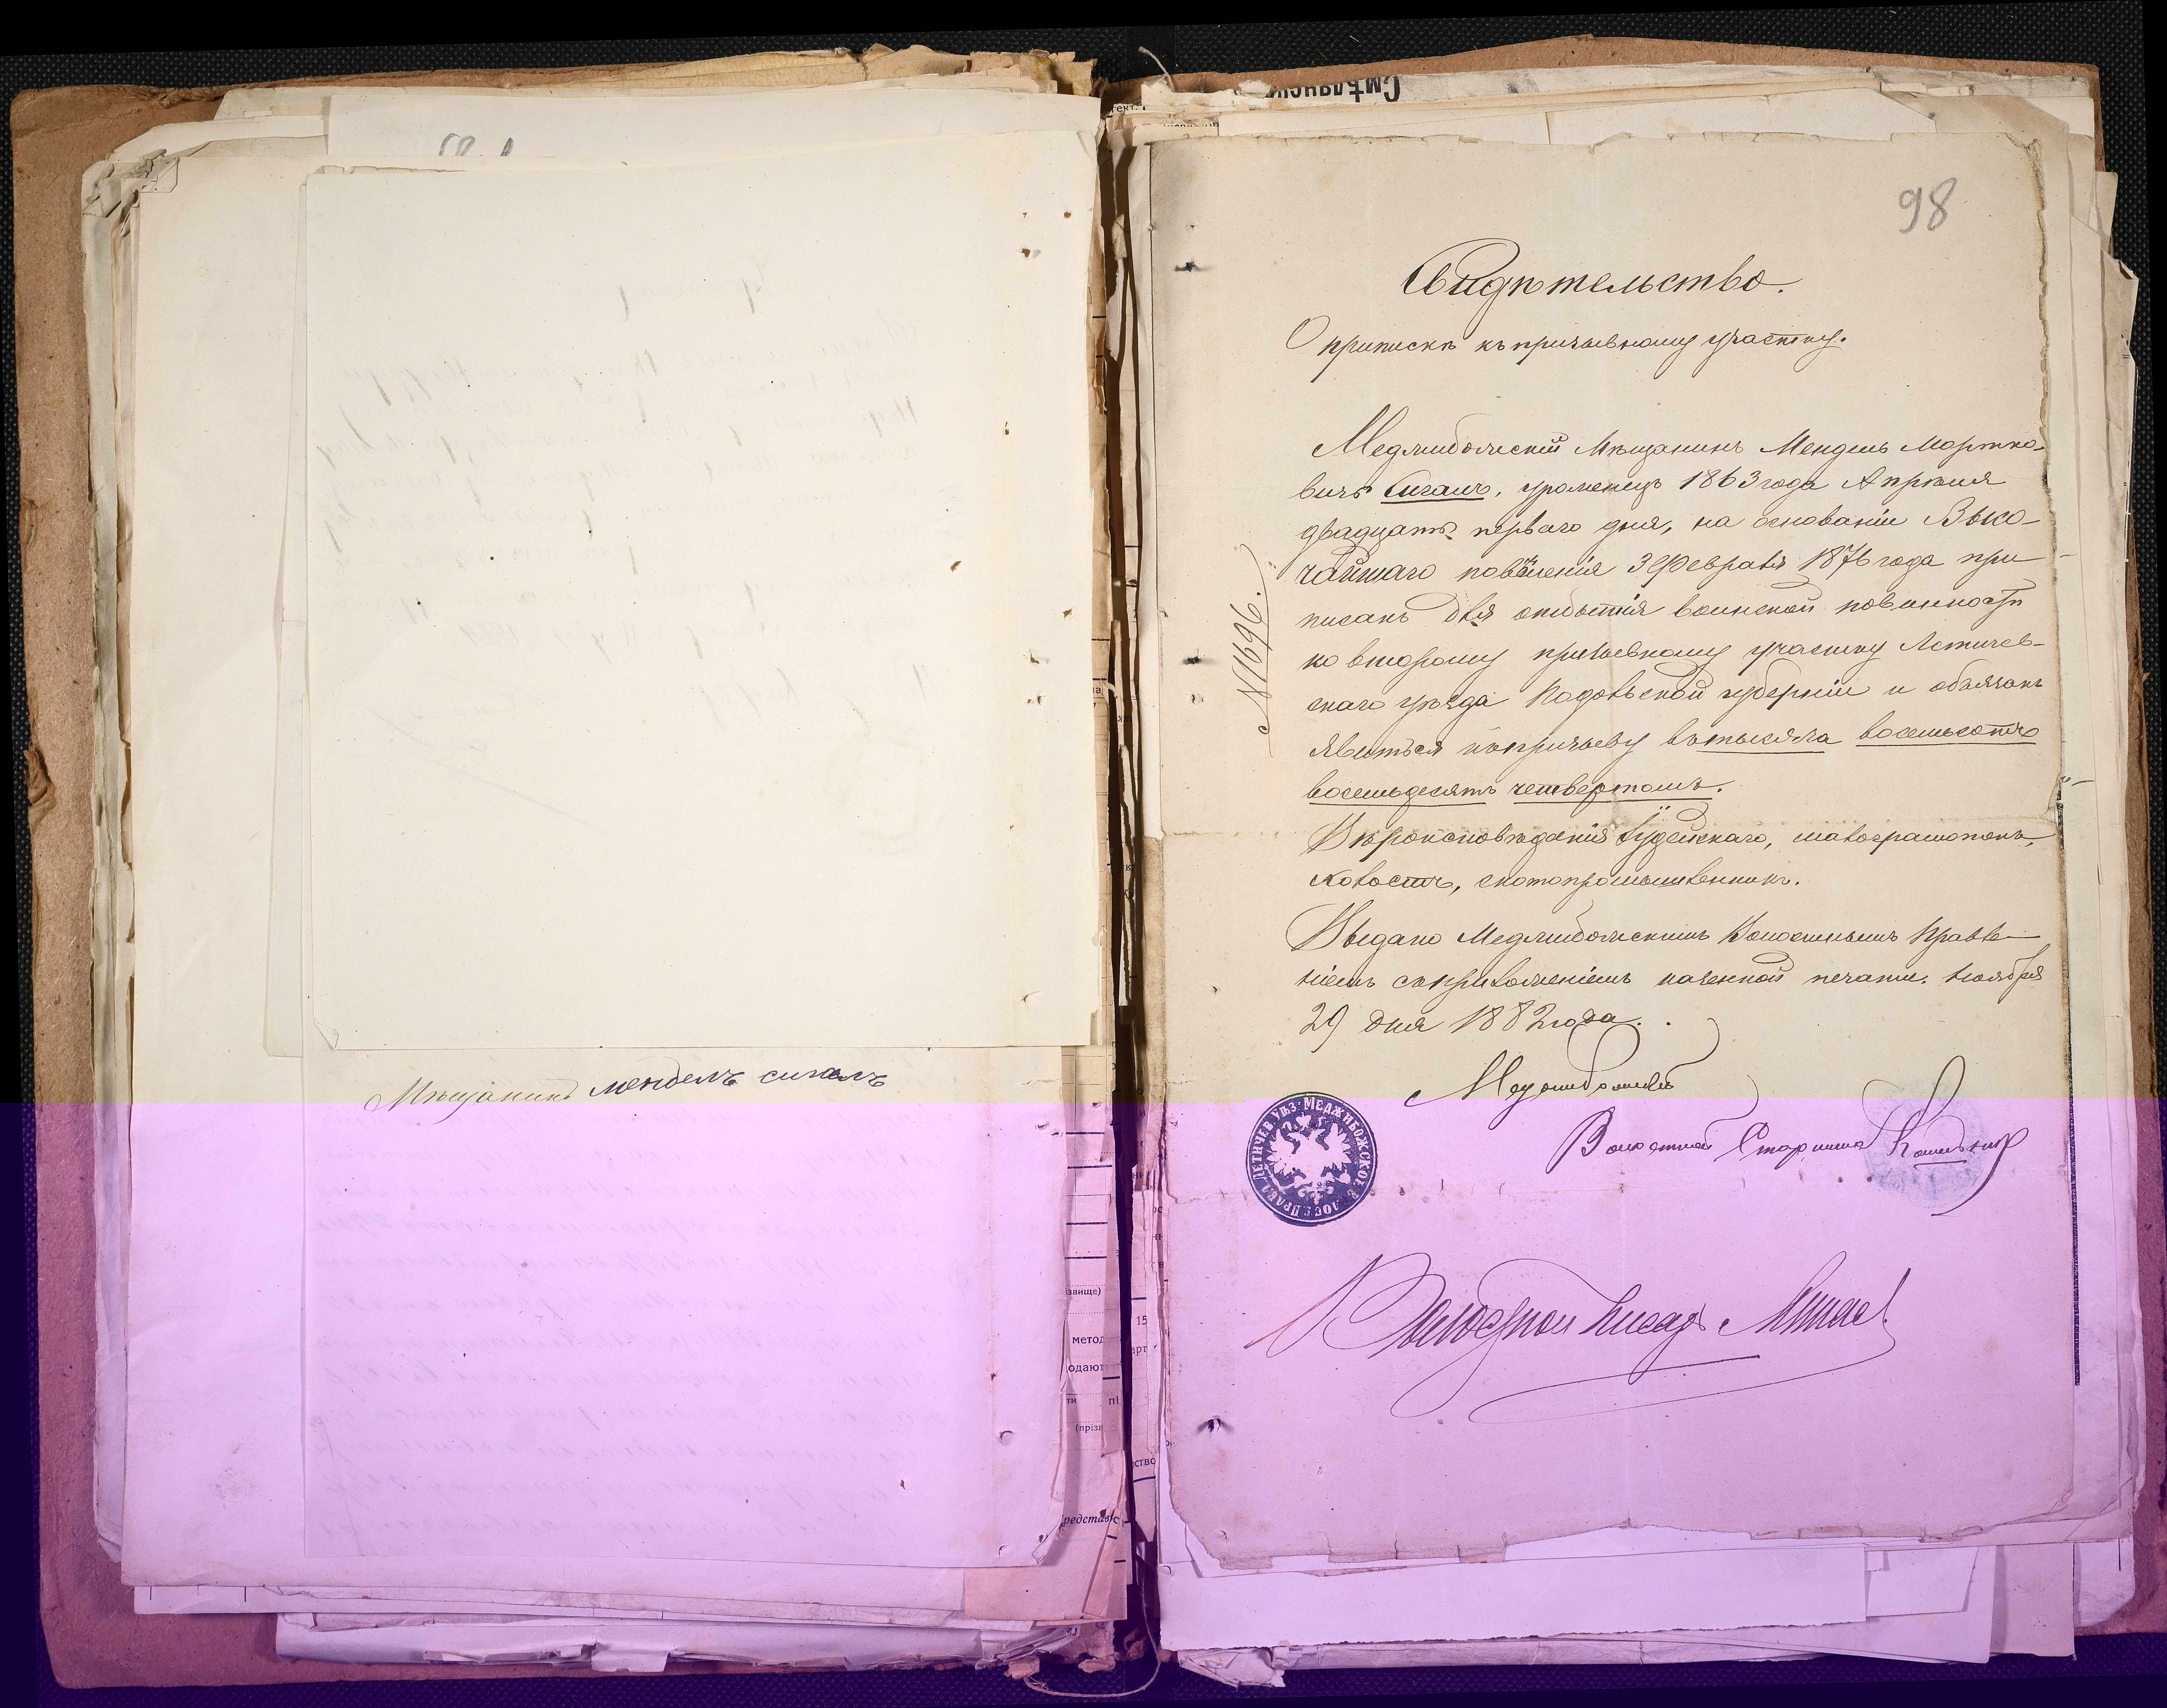 Мѣщанинъ Мендель Сигалъ
Смѣлянск
98
Свидѣтельство.
О припискѣ къ призывному участку.
Меджибожскій Мѣщанинъ Мендель Мортко-
вичъ Сигалъ, уроженецъ 1863 года Апрѣля
двадцать перваго дня, на основаніи Высо-
чайшаго повѣленія 3 Февраля 1876 года при
писанъ для отбытія воинской повинности
ко второму призывному участку Летичев-
скаго уѣзда Подольской губерніи и обязанъ
явиться къ призыву въ тысяча восемьсотъ
восемьдесятъ четвертомъ.
Вѣроисповѣданія Іудейскаго, малограмотенъ,
холостъ, скотопромышленникъ.
Выдано Меджибожскимъ Волостнымъ Правле-
ніемъ съ приложеніемъ казенной печати. Ноября
29 дня 1882 года.
N 1696.
Меджибожскій
Волостной Старшина
МЕДЖИБОЖСКОЕ ВОЛОС. ПРАВЛ. ЛЕТИЧЕВ. УѢЗ.
Волостной Писарь
звище)
метод
одают
ти пі
(прізв
редстав
15
арт
ство